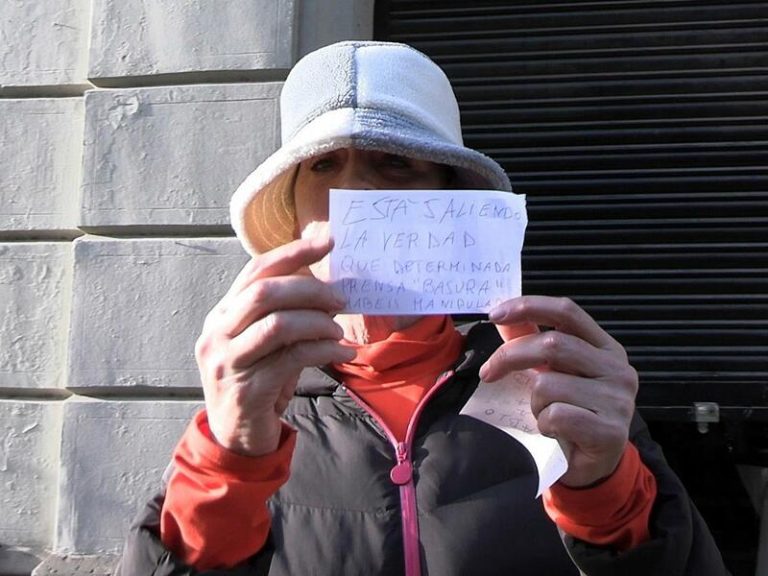 ESTÁ SALIENDO
LA VERDAD
QUE DETERMINADA
PRENSA "BASURA"
HABEIS MANIPULAD